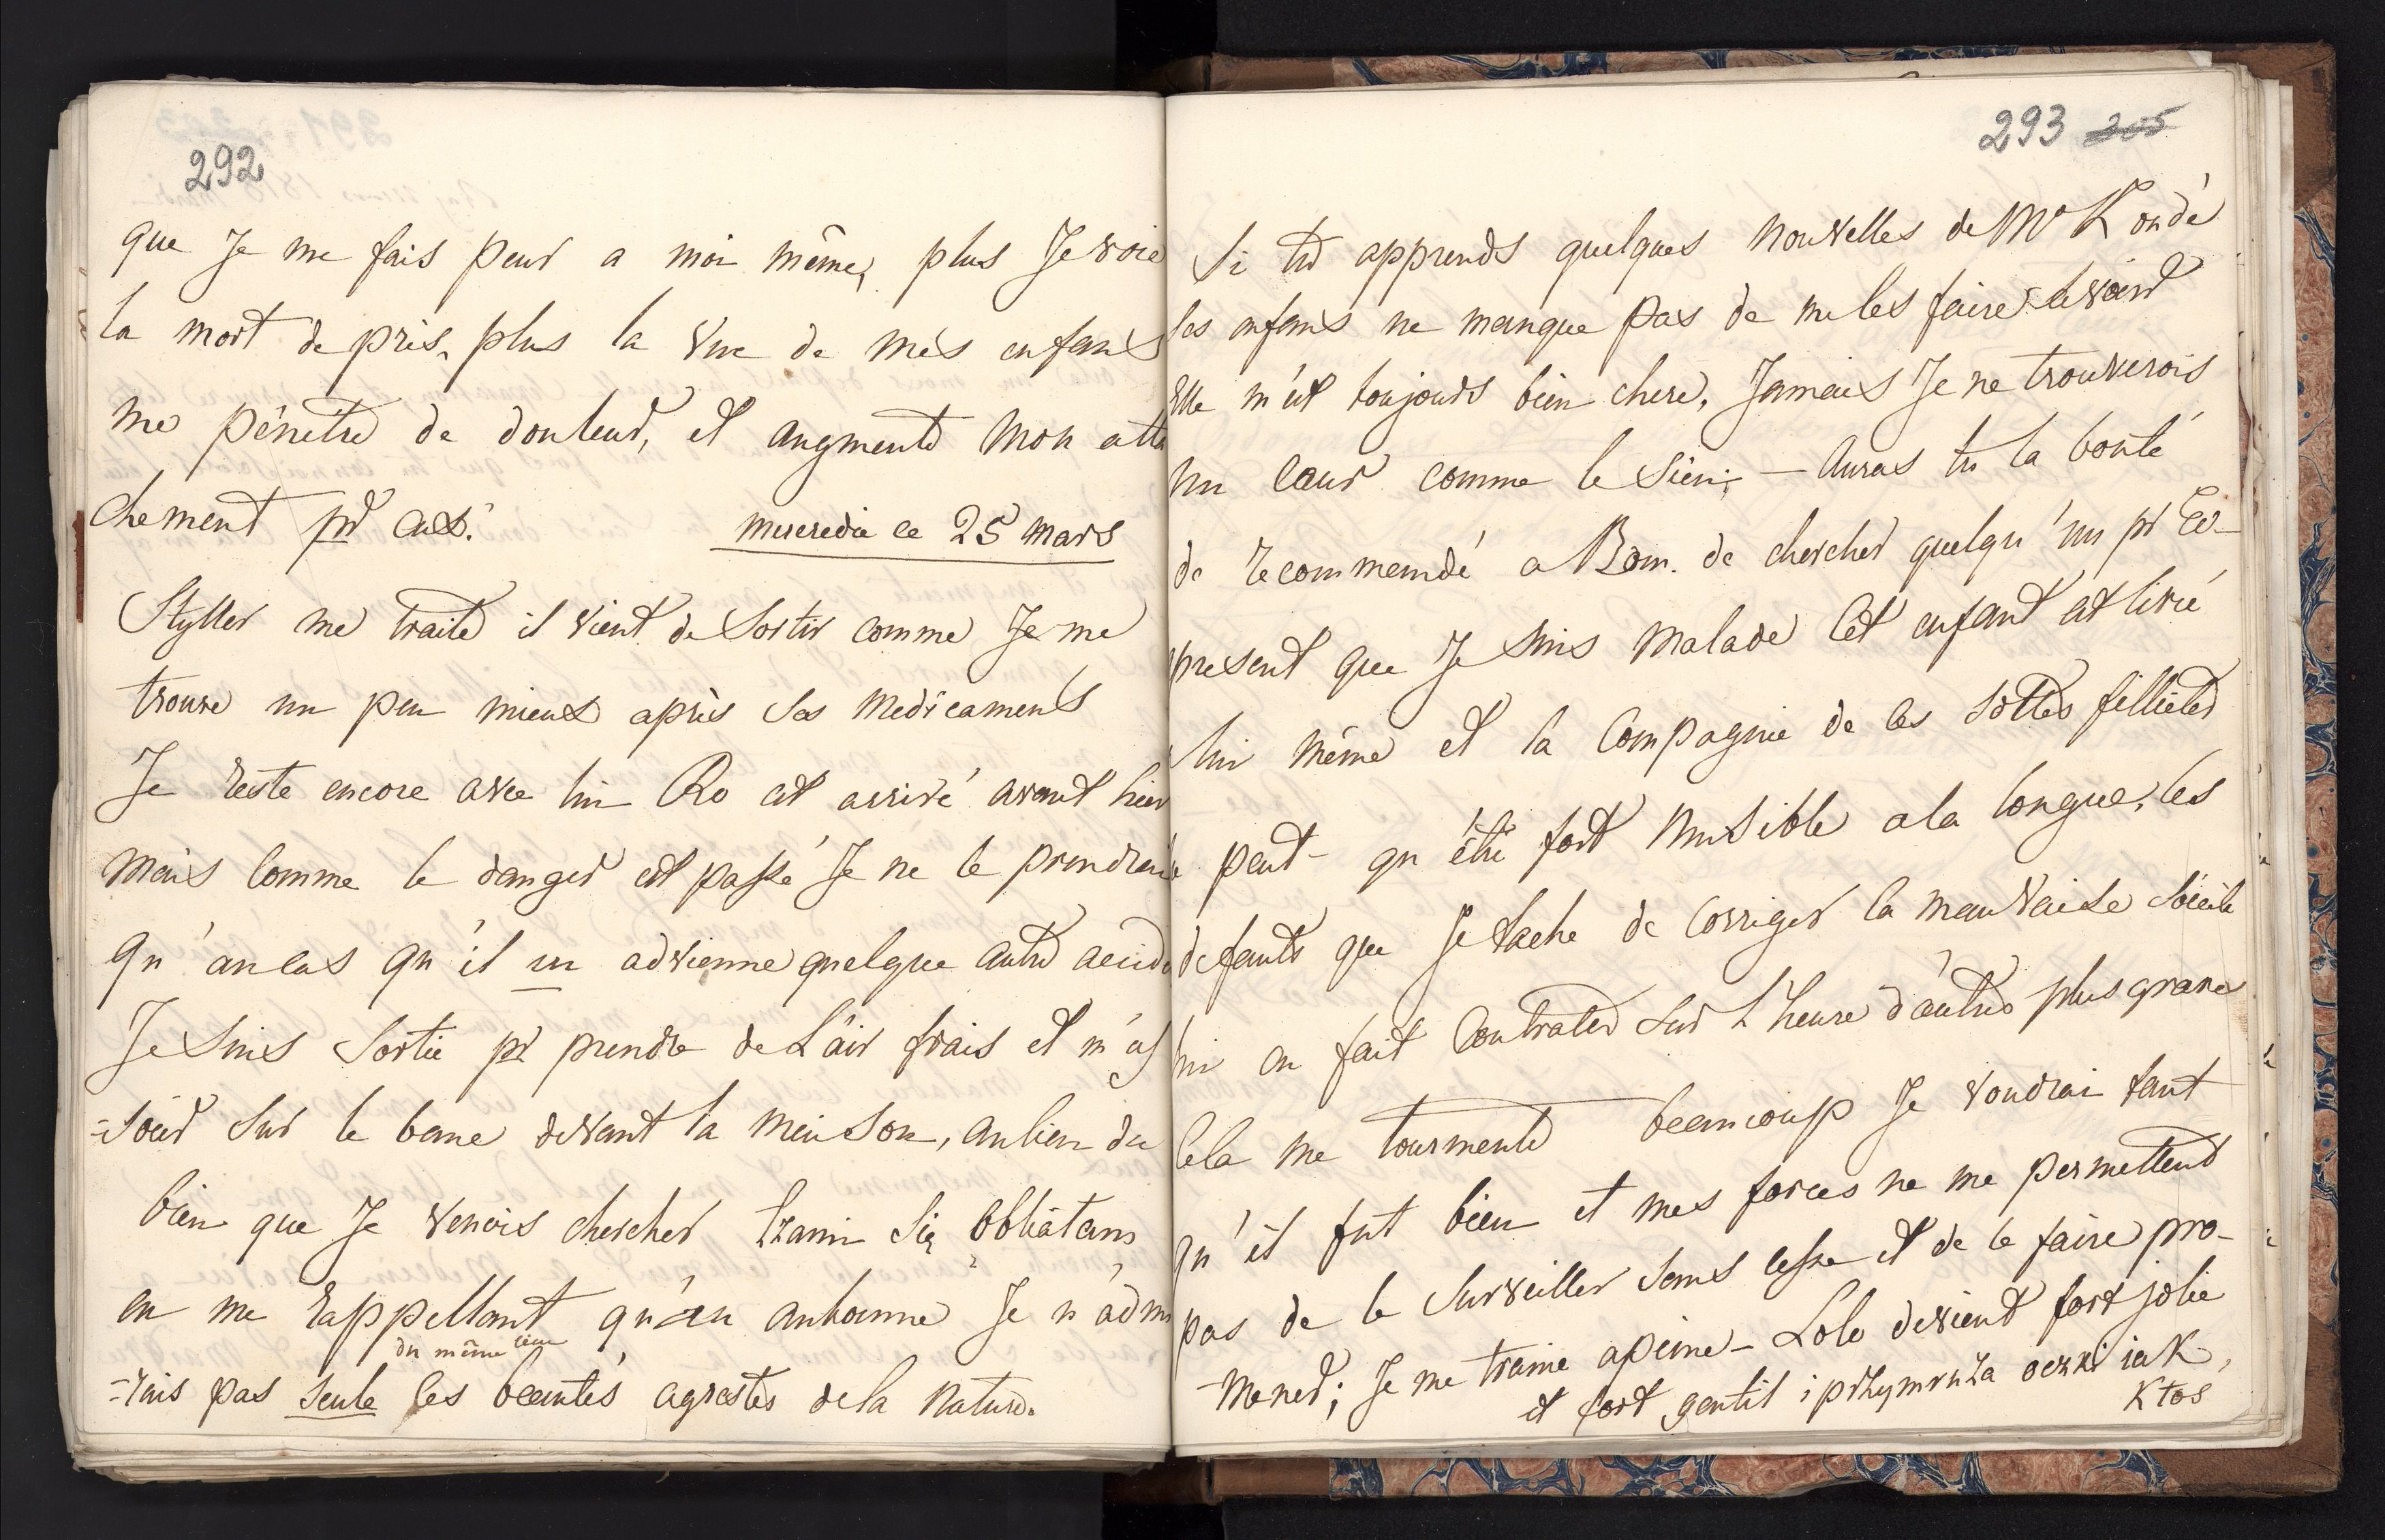 292
que Je me fais peur a moi même, plus Je voie
la mort de près, plus la vue de mes enfans
me pénètre de douleur, et augmente mon atta
chement pr eux.
mercredie ce 25 mars
Styller me traite il vient de sortir comme Je me
trouve un peu mieux après ses medicaments
Je reste encore avec lui Ro est arrivé avant hier
mais comme le danger est passé Je ne le prendrai
qu'au cas qu'il en advienne quelque autre accide
Je suis sortie pr prendre de L'air frais et m'as
=soier sur le banc devant la maison, au lieu du
bien que Je venois chercher łzami się obliałam
en me rappellant qu'en authomne Je n'admi
=rais pas seule les beautés agrestes de la nature.
du même lieu
293 305
Si tu apprends quelques nouvelles de Me K ou de
ses enfans ne manque pas de me les faire savoir
Elle m'est toujours bien chere, Jamais Je ne trouverois
un cœur comme le sien; — Auras tu la bonté
de recommendé a Bom. de chercher quelqu'un pr Ed-
present que Je suis malade Cet enfant est livré
lui même et la Compagnie de ces sottes filliettes
peut- qu'être fort nuisible a la longue, les
defauts que Je tache de corriger la mauvaise sociéte
lui en fait Contrater sur L'heure d'autres plus graves
Cela me tourmente beaucoup Je voudrai tant
qu'il fut bien et mes forces ne me permettent
pas de le surveiller sans cesse et de le faire pro-
mener; Je me traine apeine - Lolo devient fort jolie
et fort gentil i przymruża oczki jak
Ktos